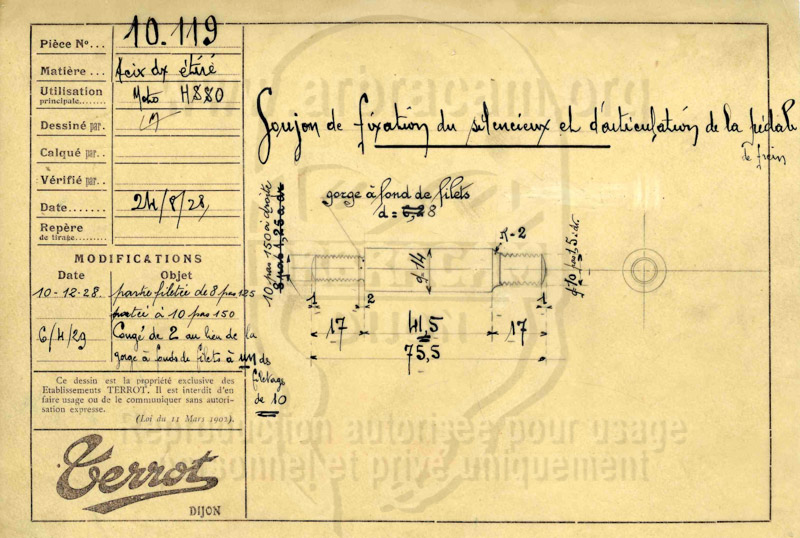 Pièce N°... 10.119
Matière ... Acix dx étiré
Utilisation principale........ Moto HSSO
Dessiné par.
Calqué par..
Vérifié par..
Date....... 24/8/28,
Repère de tirage...........
MODIFICATIONS
Date Objet
10-12-28. partie filetée de 8 pas 125
portée à 10 pas 150
6/4/29 Congé de 2 au lieu de la
gorge à fonds de filets à un des
filetages
de 10
Ce dessin est la propriété exclusive des
Etablissements TERROT. Il est interdit d'en
faire usage ou de le communiquer sans autori-
sation expresse.
(Loi du 11 Mars 1902).
Terrot
DIJON
Goujon de fixation du silencieux et d'articulation de la pédale
de frein
gorge à fond de filets
d = 6,28
10 pas 150 à droite
8 pas 1,25 à dr
ϕ 14
R-2
ϕ 10 pas 1,5 dr.
1 2 1
17 41,5 17
75,5
Reproduction autorisée pour usage
personnel et privé uniquement